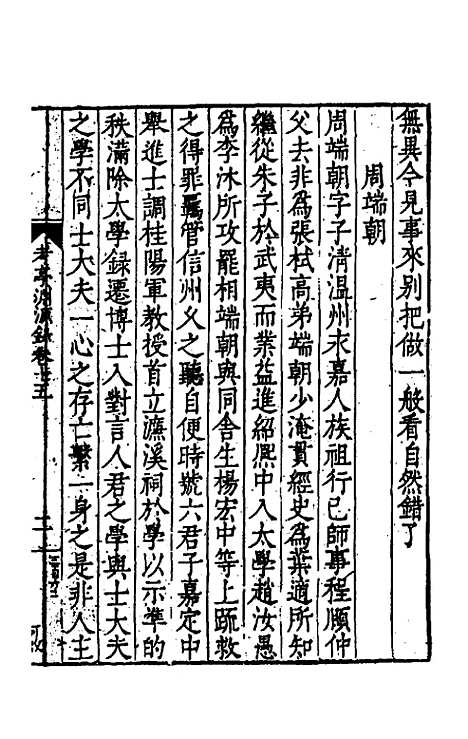 無異今見事來別把做一般看自然錯了
周端朝
周端朝字子清溫州永嘉人族祖行已師事程頤仲
父去非為張栻高弟端朝少淹貫經史為葉適所知
繼從朱子於武夷而業益進紹熙中入太學趙汝愚
為李沐所攻罷相端朝與同舍生楊宏中等上䟽救
之得罪羈管信州乆之聽自便時號六君子嘉定中
舉進士調桂陽軍教授首立濂溪祠於學以示準的
秩滿除太學録遷博士入對言人君之學與士大夫
之學不同士大夫一心之存亡繫一身之是非人主
考亭淵源録卷
五